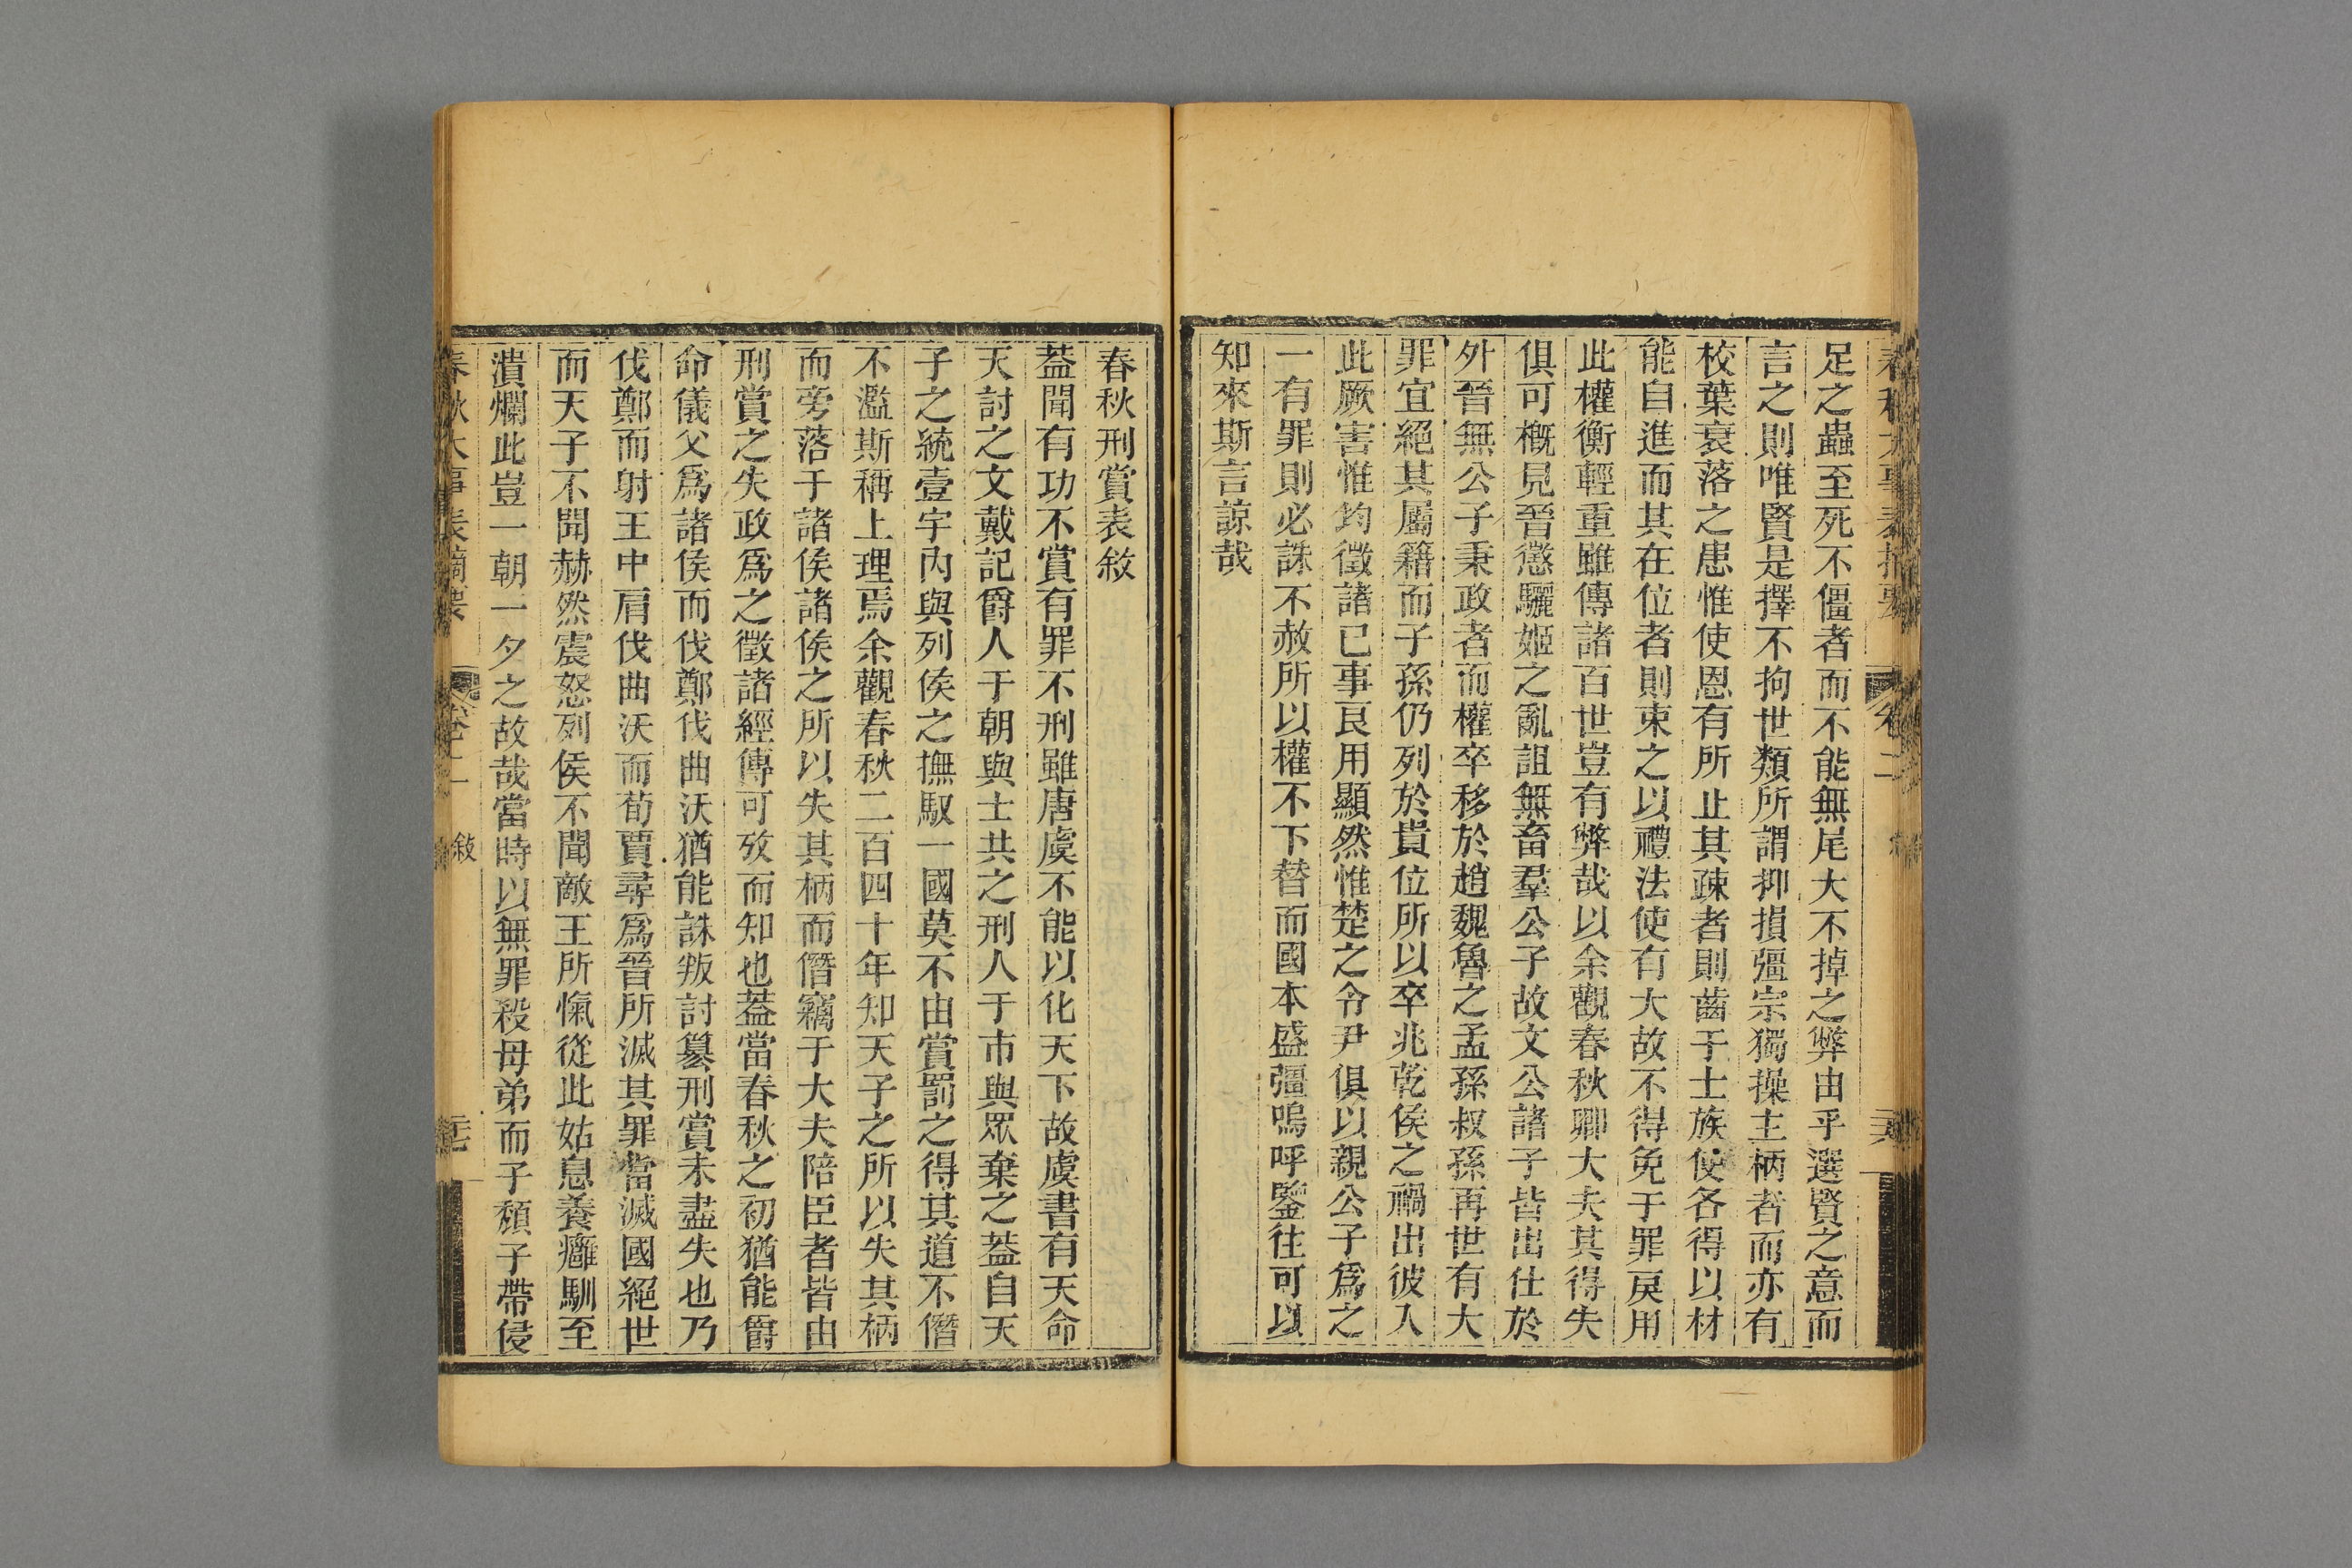 足之蟲至死不僵者而不能無尾大不掉之弊由乎選賢之意而
言之則唯賢是擇不拘世類所謂抑損彊宗獨操主柄者而亦有
校葉衰落之患惟使恩有所止其疎者則齒于士族使各得以材
能自進而其在位者則束之以禮法使有大故不得免于罪戾用
此權衡輕重雖傳諸百世豈有弊哉以余觀春秋卿大夫其得失
俱可槪見晉懲驪姬之亂詛無畜羣公子故文公諸子皆出仕於
外晉無公子秉政者而權卒移於趙魏魯之孟孫叔孫再世有大
罪宜絕其屬籍而子孫仍列於貴位所以卒兆乾侯之禍出彼入
此厥害惟均徵諸已事艮用顯然惟楚之令尹俱以親公子爲之
一有罪則必誅不赦所以權不下替而國本盛彊嗚呼鑒往可以
知來斯言諒哉
春秋刑賞表敘
葢聞有功不賞有罪不刑雖唐虞不能以化天下故虞書有天命
天討之文戴記爵人于朝與士共之刑人于市與眾棄之葢自天
子之統壹宇內與列侯之撫馭一國莫不由賞罰之得其道不僭
不濫斯稱上理焉余觀春秋二百四十年知天子之所以失其柄
而旁落于諸侯諸侯之所以失其柄而僭竊于大夫陪臣者皆由
刑賞之失政爲之徵諸經傳可攷而知也葢當春秋之初猶能爵
命儀父爲諸侯而伐鄭伐曲沃猶能誅叛討簒刑賞未盡失也乃
伐鄭而射王中肩伐曲沃而荀賈尋爲晉所滅其罪當滅國絕世
而天子不聞赫然震怒列侯不聞敵王所愾從此姑息養癰馴至
潰爛此豈一朝一夕之故哉當時以無罪殺母弟而子頹子帶侵
春秋大事表摘要
卷二
敘